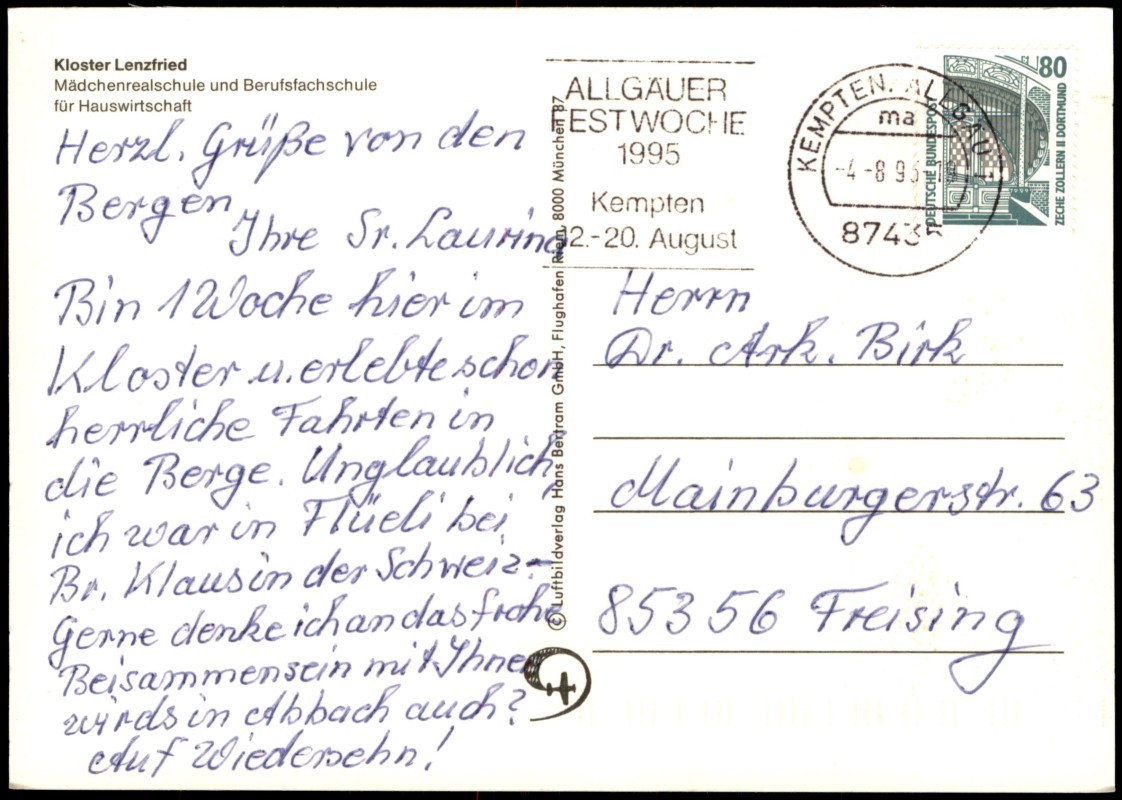 Kloster Lenzfried
Mädchenrealschule und Berufsfachschule
für Hauswirtschaft
Herzl. Grüße von den
Bergen
Ihre Sr. Laurina
Bin 1 Woche hier im
Kloster u. erlebte schon
herrliche Fahrten in
die Berge. Unglaublich,
ich war in Flüeli bei
Br. Klaus in der Schweiz-
Gerne denke ich an das frohe
Beisammensein mit Ihnen
wirds in Abbach auch?
Auf Wiedersehn!
© Luftbildverlag Hans Bertram GmbH, Flughafen Riem, 8000 München 87
ALLGÄUER
FESTWOCHE
1995
Kempten
12.-20. August
KEMPTEN, ALLGÄU 1
ma
-4.-8.95-19
8743
80
DEUTSCHE BUNDESPOST
ZECHE ZOLLERN II DORTMUND
Herrn
Dr. Ark. Birk
Mainburgerstr. 63
85356 Freising